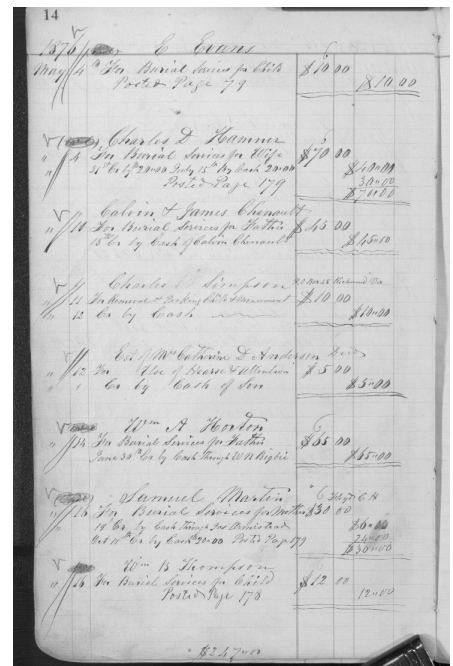 14
1876 E Evans
May 4 For Burial Services for Child $10 00
Posted Page 79 $10 00
Charles D Hamner
" 4 For Burial Services for Wife $70 00
31st Cr by 20=00 July 15th By Cash 20=00 $40=00
30=00
Posted Page 179 $70=00
Calvin & James Chenault
" 10 For Burial Services for Father $45 00
15th Cr by Cash of Calvin Chenault $45=00
Charles Simpson Richmond Va
" 11 For Removal & Packing Child & Monument $10 00
" 12 Cr by Cash $10=00
Est of Mrs Catherine D Anderson Decd
" 12 For Use of Hearse & Attention $5 00
" " Cr by Cash of Son $5=00
Wm A Horton
" 14 For Burial Services for Father $65 00
June 30th Cr by Cash through W N Bigbie $65=00
Samuel Martin C H
" 16 For Burial Services for Mother $30 00
19 Cr by Cash through Jas Armistead $6=00
Oct 11th Cr by Cash 20=00 Posted Page 179 24=00
$30=00
Wm B Thompson
" 16 For Burial Services for Child $12 00
Posted Page 178 12=00
$247=00